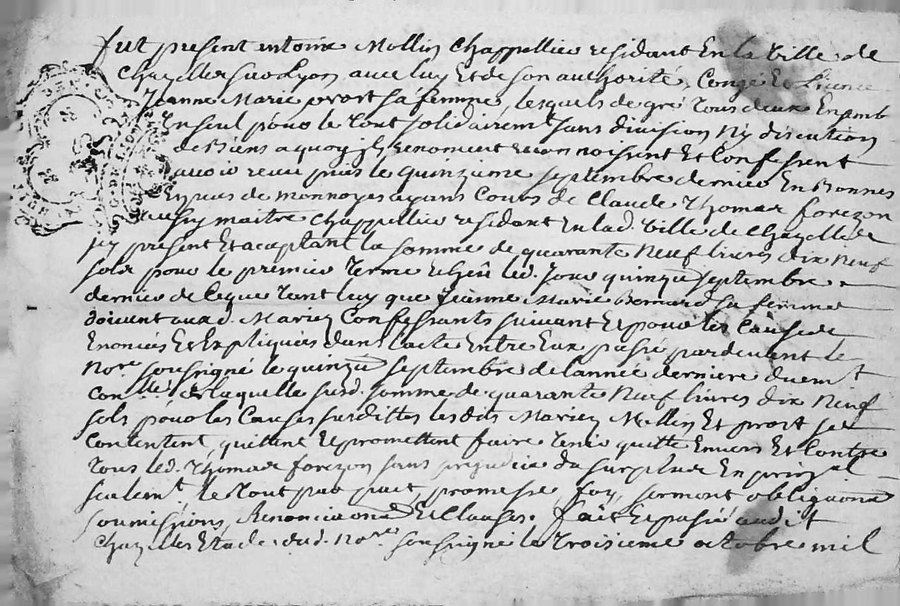 fut présent antoine Mollin Chappellier residant En la Ville de
Chazelles sur Lyon avec luy Et de son authorité, Congé Et licence
Jeanne Marie prort sa femme, lesquels de gré Tous deux Ensemb
un seul pour le Tout solidairemt sans division Ny discution
de Biens a quoy ils renoncent reconnoissent Et Confessent
avoir receu puis le quinzieme septembre dernier En Bonnes
Especes de monnoyes ayant Cours de Claude Thomas forezon
aussy maitre Chappellier residant En lad. Ville de Chazelles
icy présent Et aceptant la somme de quarante Neuf livres dix Neuf
sols pour le premier Terme Echeu led. Jour quinze septembre
dernier de Ceque Tant luy que Jeanne Marie Bernard sa femme
doivent auxd. Mariez Confessants suivant Et pour les Causes
Enoncées Et Expliquées dans lacte Entre Eux passé pardevant le
Nore soussigné le quinze septembre de lannée derniere duemt
conllé de laquelle susd. somme de quarante Neuf livres dix Neuf
sols pour les Causes susdittes lesdits Mariez Mollin Et prort se
contentent, quittent Et promettent faire Tenir quitte Envers Et Contre
Tous led. Thomas forezon sans prejudice du surplus En prinpal
seulemt. le Tout par pact, promesse, foy, serment obligaions
soumissions, Renonciaons Et Clauses. fait Et passé audit
Chazelles Etude dud. Nore soussigné le Troisieme octobre mil